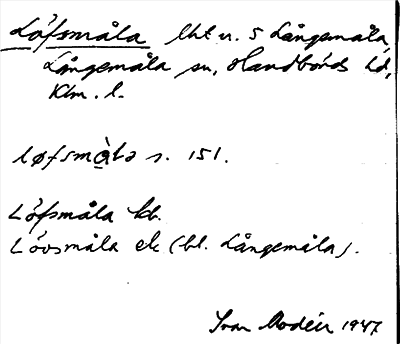 Löfsmåla lht u. S Långemåla,
Långemåla sn, Handbörds hd,
Klm. l.
løfsmɑ̀lə s. 151.
Löfsmåla kb.
Lövsmåla ek (bl. Långemåla).
Ivar Modéer 1947